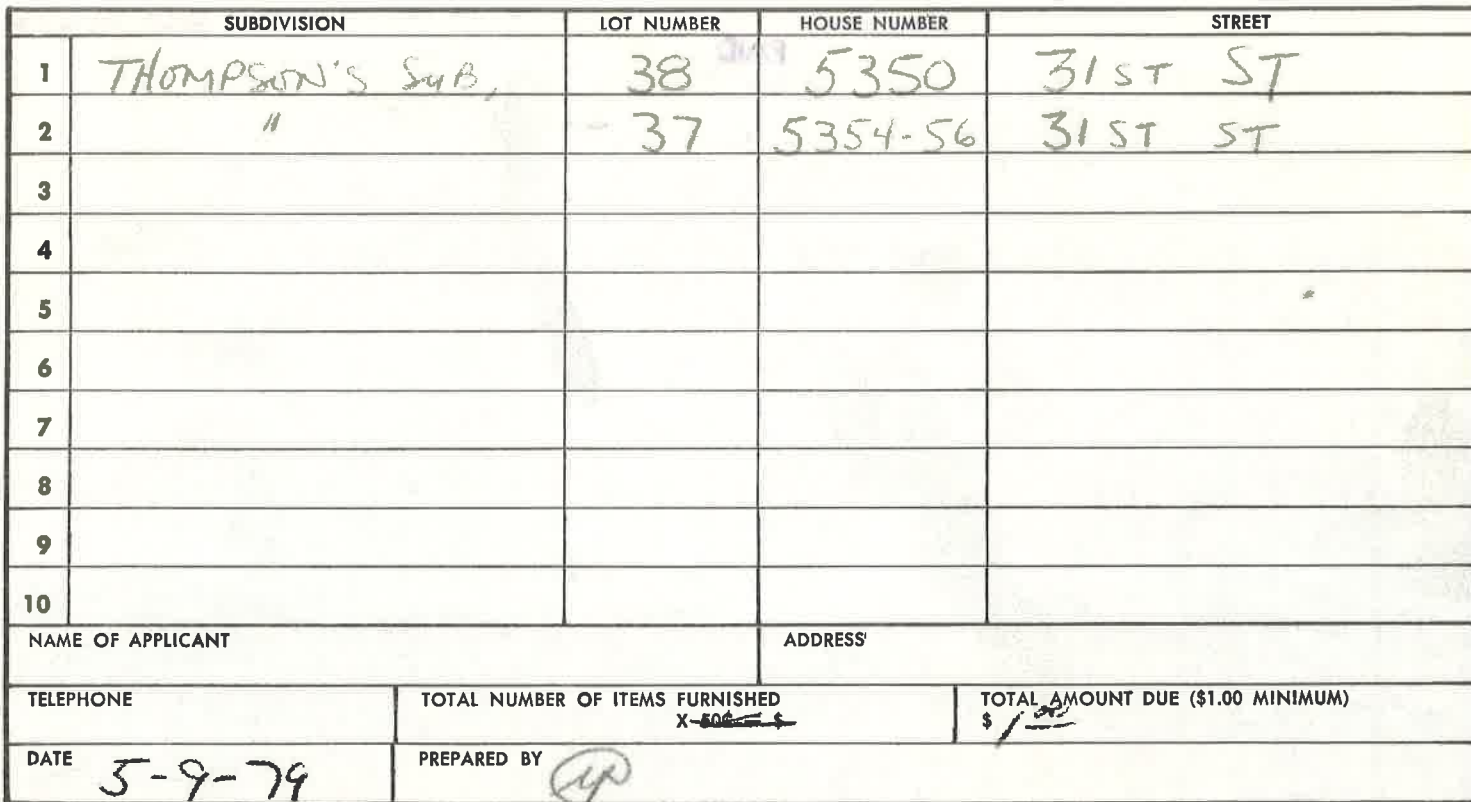 SUBDIVISION LOT NUMBER HOUSE NUMBER STREET
1 THOMPSON'S SUB, 38 5350 31ST ST
2 " 37 5354-56 31ST ST
3
4
5
6
7
8
9
10
NAME OF APPLICANT ADDRESS
TELEPHONE TOTAL NUMBER OF ITEMS FURNISHED TOTAL AMOUNT DUE ($1.00 MINIMUM)
X 50¢ = $ $ 1.00
DATE 5-9-79 PREPARED BY